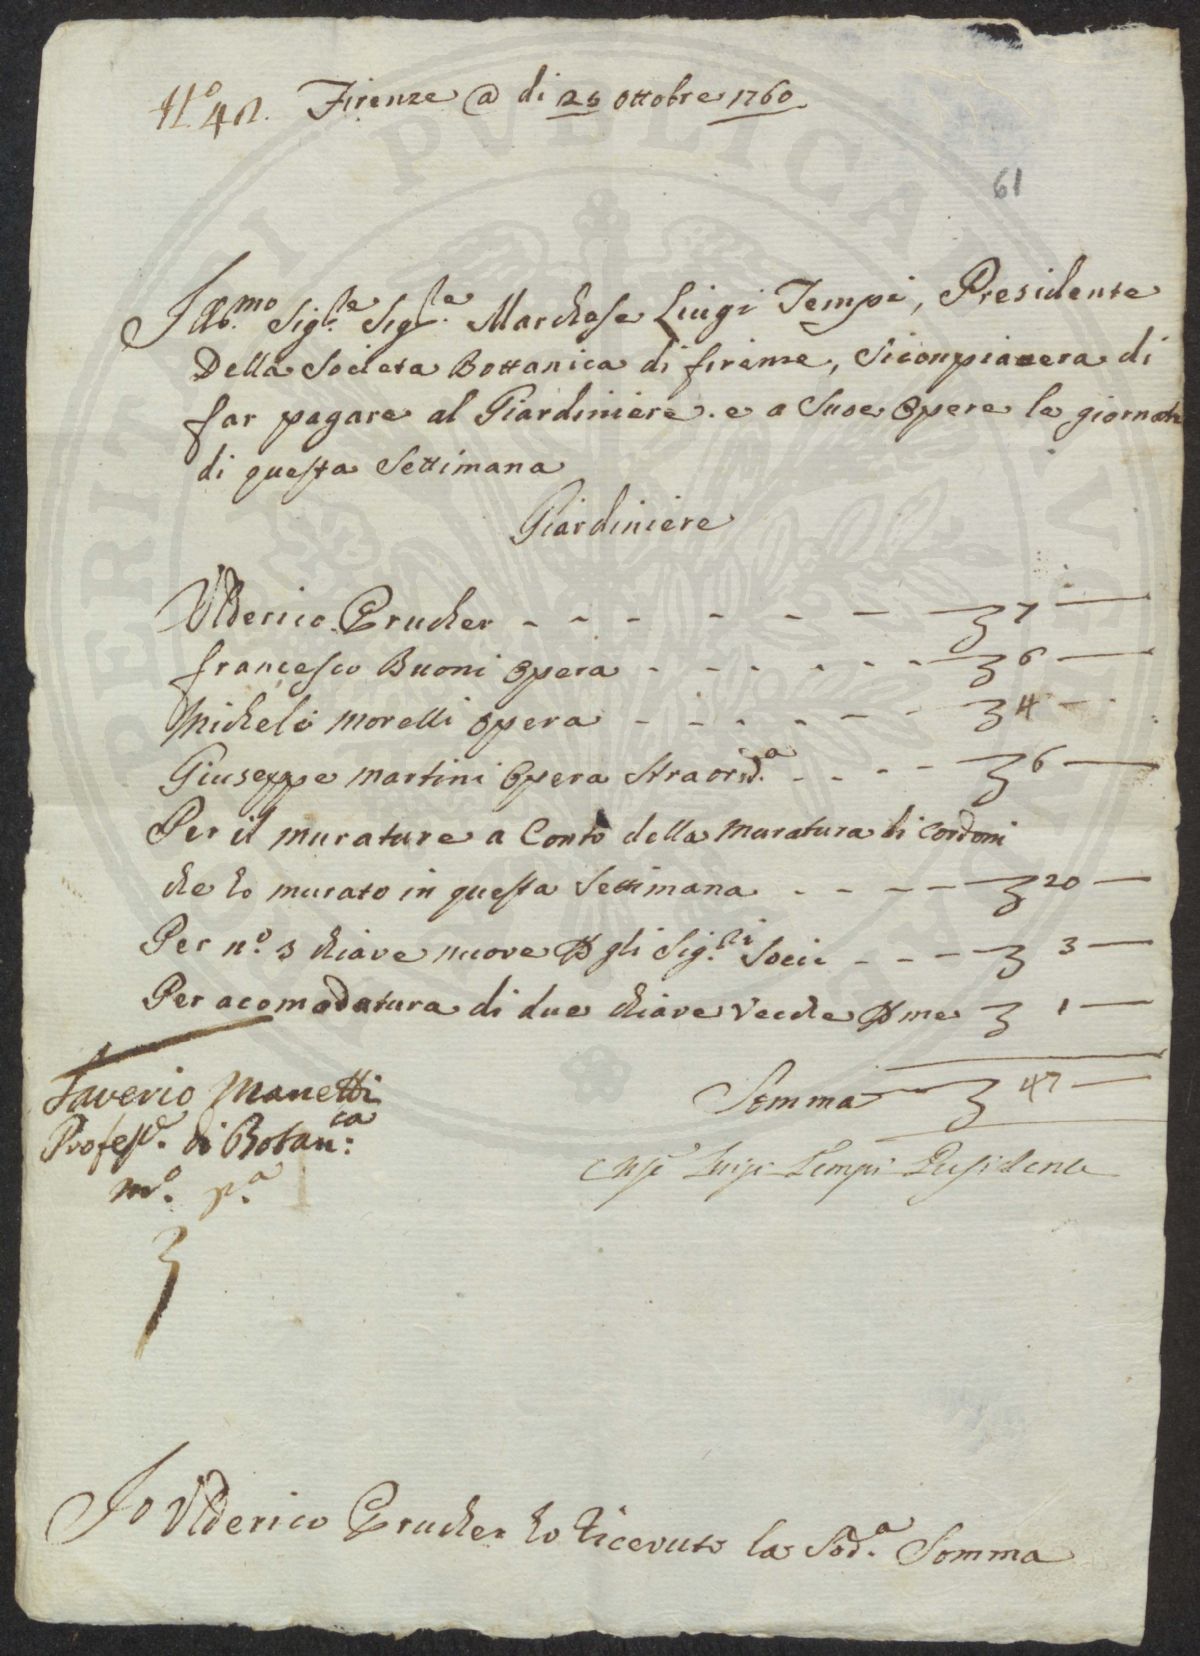 N.o 42. Firenze @ di 25 Ottobre 1760
61
Illo.mo Sig.re Sig.re Marchese Luigi Tempi, Presidente
Della Societa Bottanica di firenze, Si conpiacera di
far pagare al Giardiniere. e a Sue Opere le giornate
di questa Settimana
Giardiniere
Ulderico Prucher - - - - - - 7 —
francesco Buoni Opera - - - - - - 6 —
Michele morelli opera - - - - - - 4 -
Giuseppe martini Opera Straord.a - - - - 6 —
Per il murature a Conto della muratura di Cordoni
che ho murato in questa Settimana - - - - 20 —
Per n.o 3 chiave nuove p gli Sig.ri Socii - - - - 3 —
Per acomodatura di due chiave Vecche p me 1 —
Somma 47 —
Saverio Manetti
Profess.e di Botan.ca
m.o p.a
Luigi Tempi Presidente
Io Ulderico Prucher ho riceuuto la Sod.a Somma
PERITI PVBLICAE